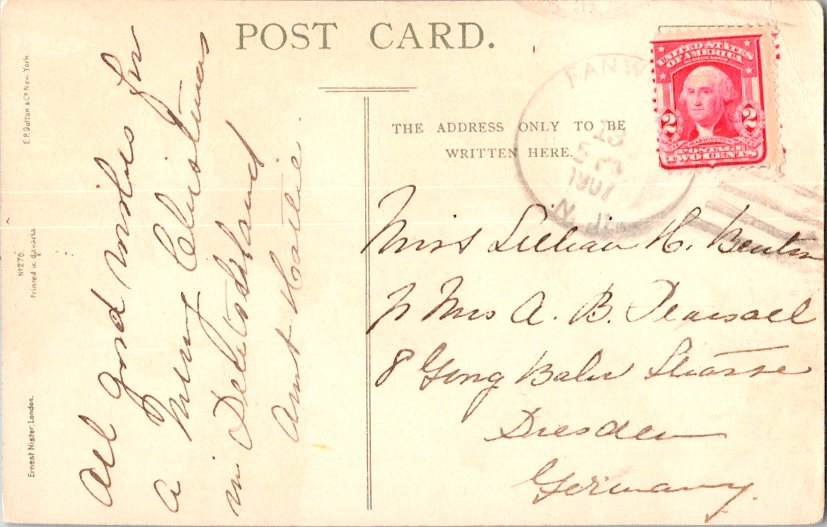 POST CARD.
THE ADDRESS ONLY TO BE
WRITTEN HERE.
E.P. Dutton & Co. New York.
No 276
Printed in Bavaria
Ernest Nister, London.
UNITED STATES
OF AMERICA
2 2
POSTAGE
TWO CENTS
FANW
13
1907
N.J.
All good wishes for
a Merry Christmas
in
Aunt Hattie.
Miss Lillian H. Benton
Mrs A. B. Pearsall
8
Dresden
Germany.